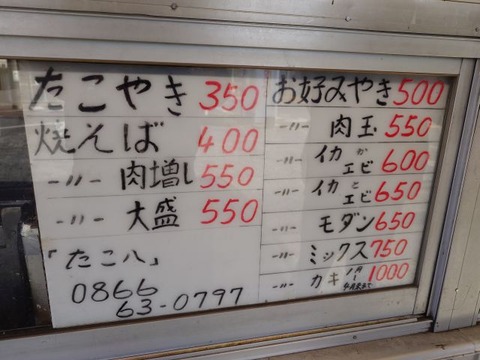 たこやき 350
焼そば 400
-〃- 肉増し 550
-〃- 大盛 550
「たこ八」
0866
63-0797
お好みやき 500
-〃- 肉玉 550
-〃- イカかエビ 600
-〃- イカとエビ 650
-〃- モダン 650
-〃- ミックス 750
-〃- カキ 1000